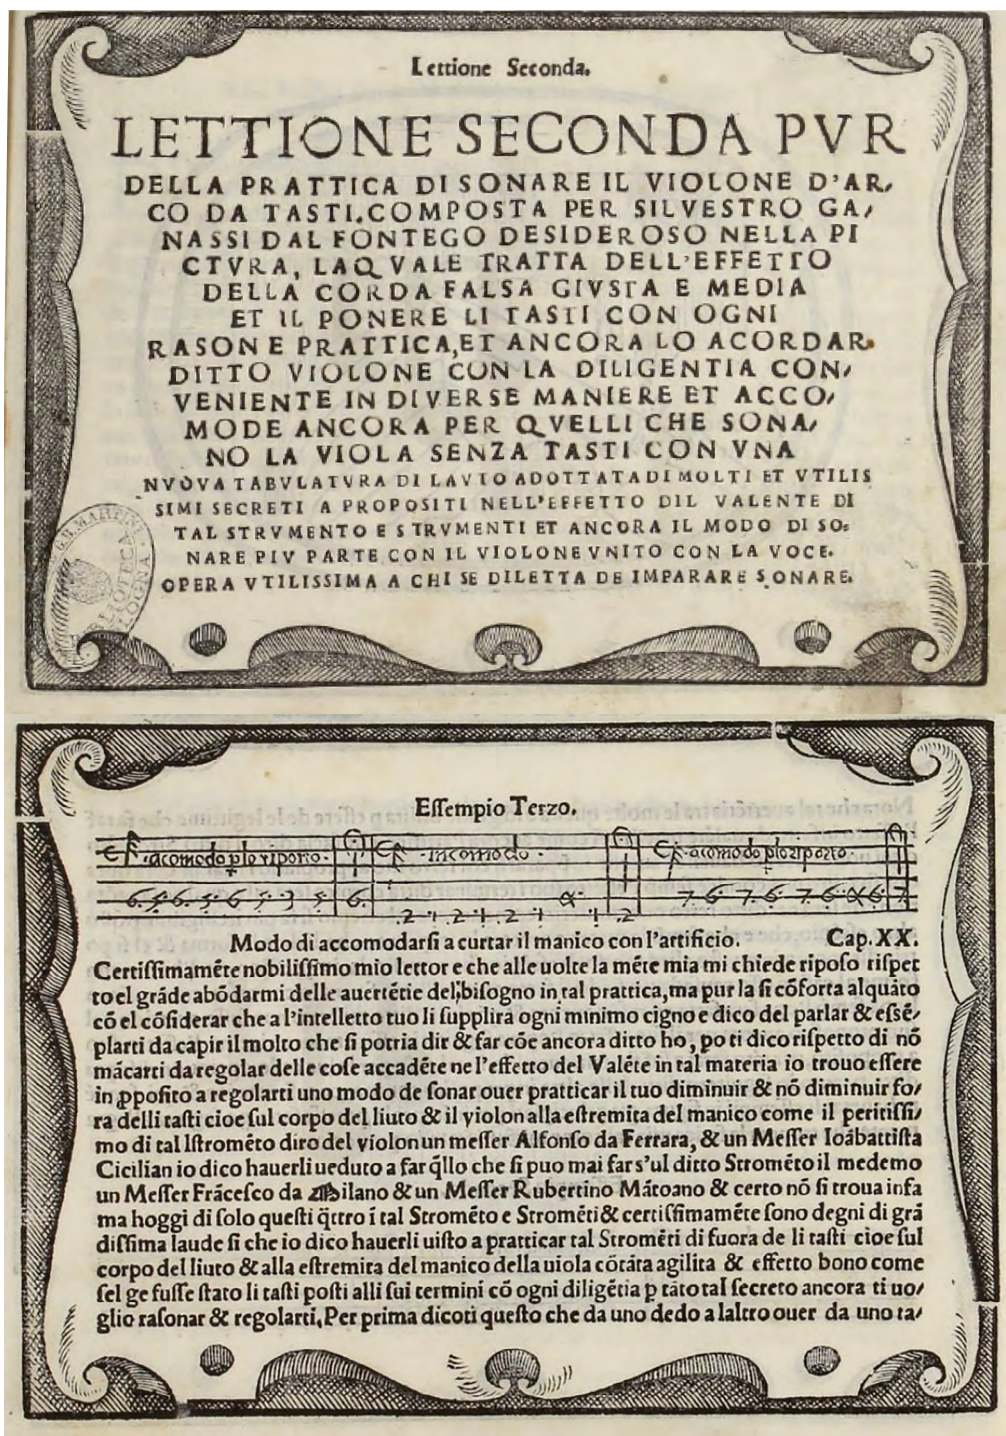 Lettione Seconda.
LETTIONE SECONDA PVR
DELLA PRATTICA DI SONARE IL VIOLONE D'AR,
CO DA TASTI. COMPOSTA PER SILVESTRO GA,
NASSI DAL FONTEGO DESIDEROSO NELLA PI
CTVRA, LAQVALE TRATTA DELL'EFFETTO
DELLA CORDA FALSA GIVSTA E MEDIA
ET IL PONERE LI TASTI CON OGNI
RASON E PRATTICA, ET ANCORA LO ACORDAR.
DITTO VIOLONE CON LA DILIGENTIA CON,
VENIENTE IN DIVERSE MANIERE ET ACCO,
MODE ANCORA PER QVELLI CHE SONA,
NO LA VIOLA SENZA TASTI CON VNA
NVOVA TABVLATVRA DI LAVTO ADOTTATA DI MOLTI ET VTILIS
SIMI SECRETI A PROPOSITI NELL'EFFETTO DIL VALENTE DI
TAL STRVMENTO E STRVMENTI ET ANCORA IL MODO DI SO:
NARE PIV PARTE CON IL VIOLONE VNITO CON LA VOCE.
OPERA VTILISSIMA A CHI SE DILETTA DE IMPARARE SONARE.
Eſſempio Terzo.
acomodo plo riporto · incomodo · acomodo plo riporto
6 5 6 5 6 5 3 5 6 2 1 2 1 2 1 α 1 2 7 6 7 6 7 6 α 6 7
Modo di accomodarſi a curtar il manico con l'artificio. Cap.XX.
Certiſſimamẽte nobiliſſimo mio lettor e che alle uolte la mẽte mia mi chiede ripoſo riſpet
to el grãde abõdarmi delle auertẽtie del biſogno in tal prattica, ma pur la ſi cõforta alquãto
cõ el cõſiderar che a l'intelletto tuo li ſupplira ogni minimo cigno e dico del parlar & eſsẽ,
plarti da capir il molto che ſi potria dir & far cõe ancora ditto ho, po ti dico riſpetto di nõ
mãcarti da regolar delle coſe accadẽte ne l'effetto del Valẽte in tal materia io trouo eſſere
in ꝓpoſito a regolarti uno modo de ſonar ouer pratticar il tuo diminuir & nõ diminuir fo,
ra delli taſti cioe ſul corpo del liuto & il violon alla eſtremita del manico come il peritiſſi,
mo di tal Iſtromẽto diro del violon un meſſer Alfonſo da Ferrara, & un Meſſer Ioãbattiſta
Cicilian io dico hauerli ueduto a far q̃llo che ſi puo mai far s'ul ditto Stromẽto il medemo
un Meſſer Frãceſco da Milano & un Meſſer Rubertino Mãtoano & certo nõ ſi troua infa
ma hoggi di ſolo queſti q̃ttro ĩ tal Stromẽto e Stromẽti & certiſſimamẽte ſono degni di grã
diſſima laude ſi che io dico hauerli uiſto a pratticar tal Stromẽti di fuora de li taſti cioe ſul
corpo del liuto & alla eſtremita del manico della uiola cõtãta agilita & effetto bono come
ſel ge fuſſe ſtato li taſti poſti alli ſui termini cõ ogni diligẽtia p tãto tal ſecreto ancora ti uo,
glio raſonar & regolarti. Per prima dicoti queſto che da uno dedo a laltro ouer da uno ta,